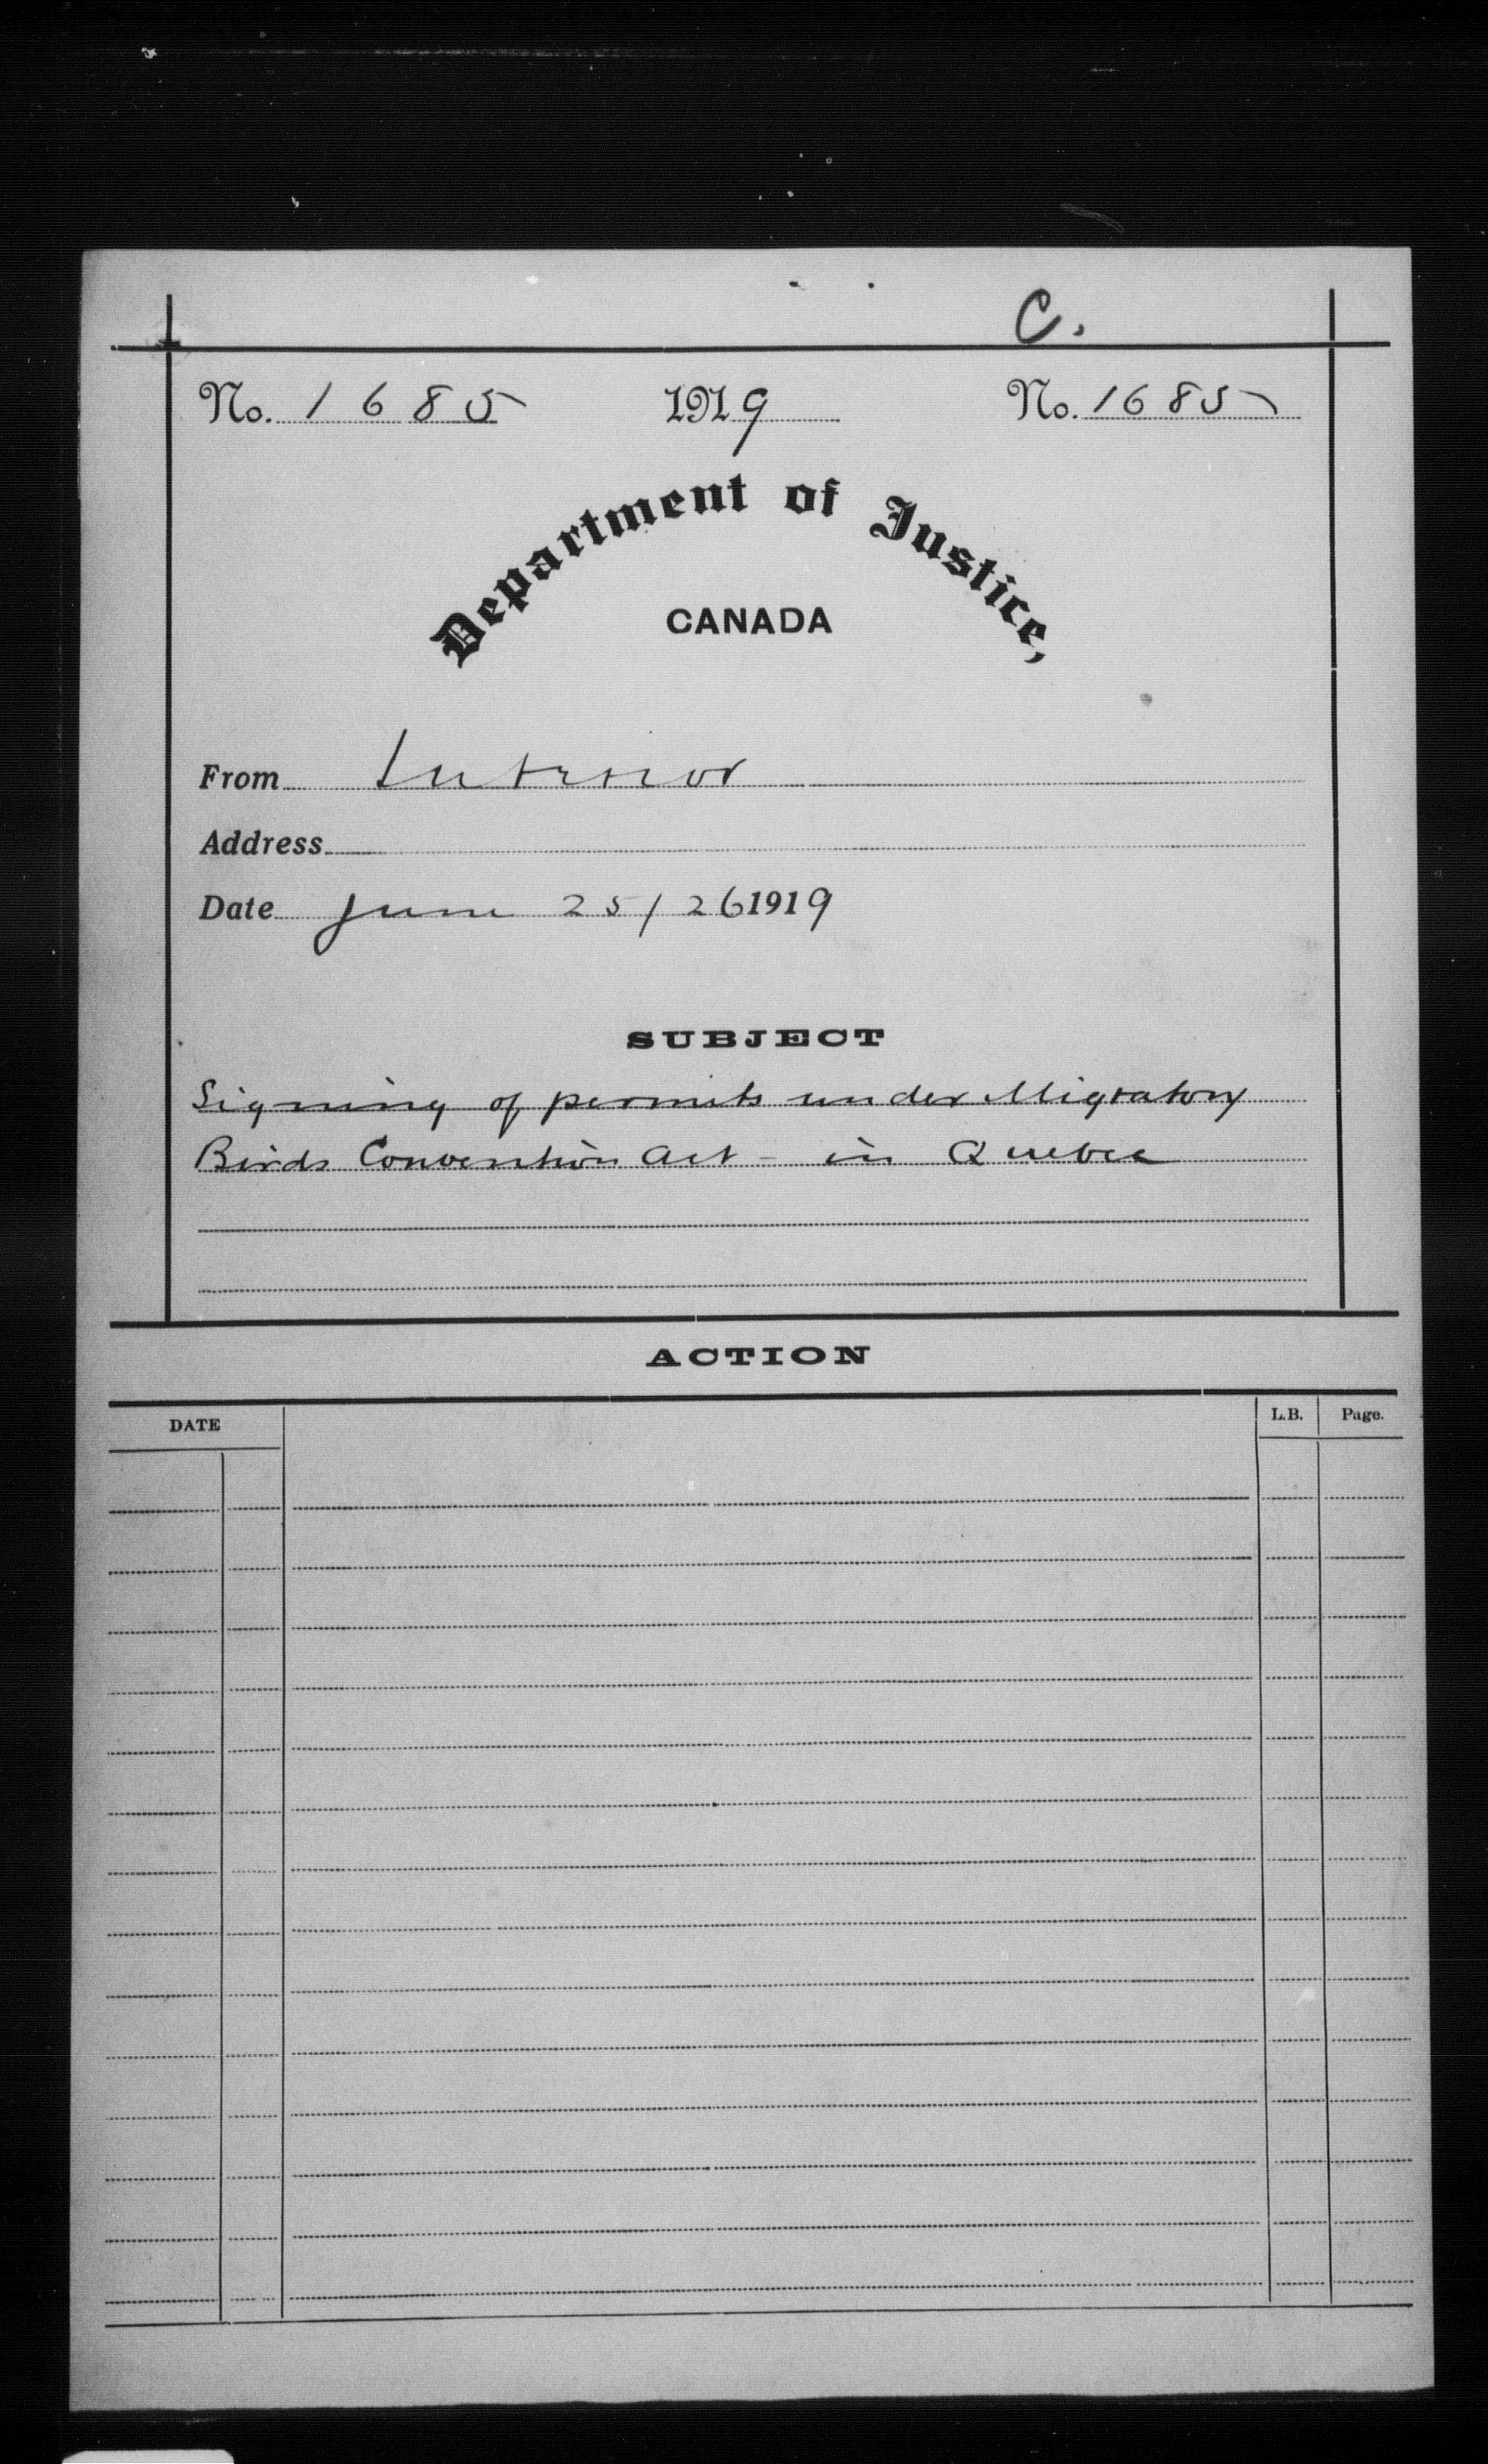 C.
No. 1685 1919 No. 1685
Department of Justice,
CANADA
From Interior
Address
Date June 25/26 1919
SUBJECT
Signing of permits under Migratory
Birds Convention Act - in Quebec
ACTION
DATE L.B. Page.